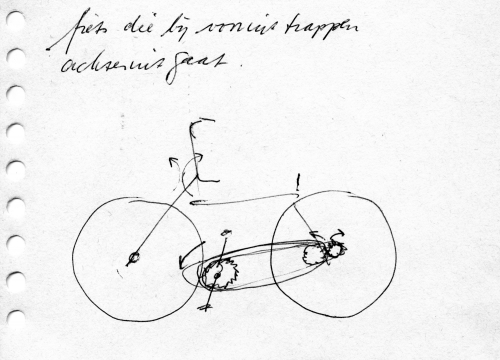 fiets die bij vooruit trappen
achteruit gaat.